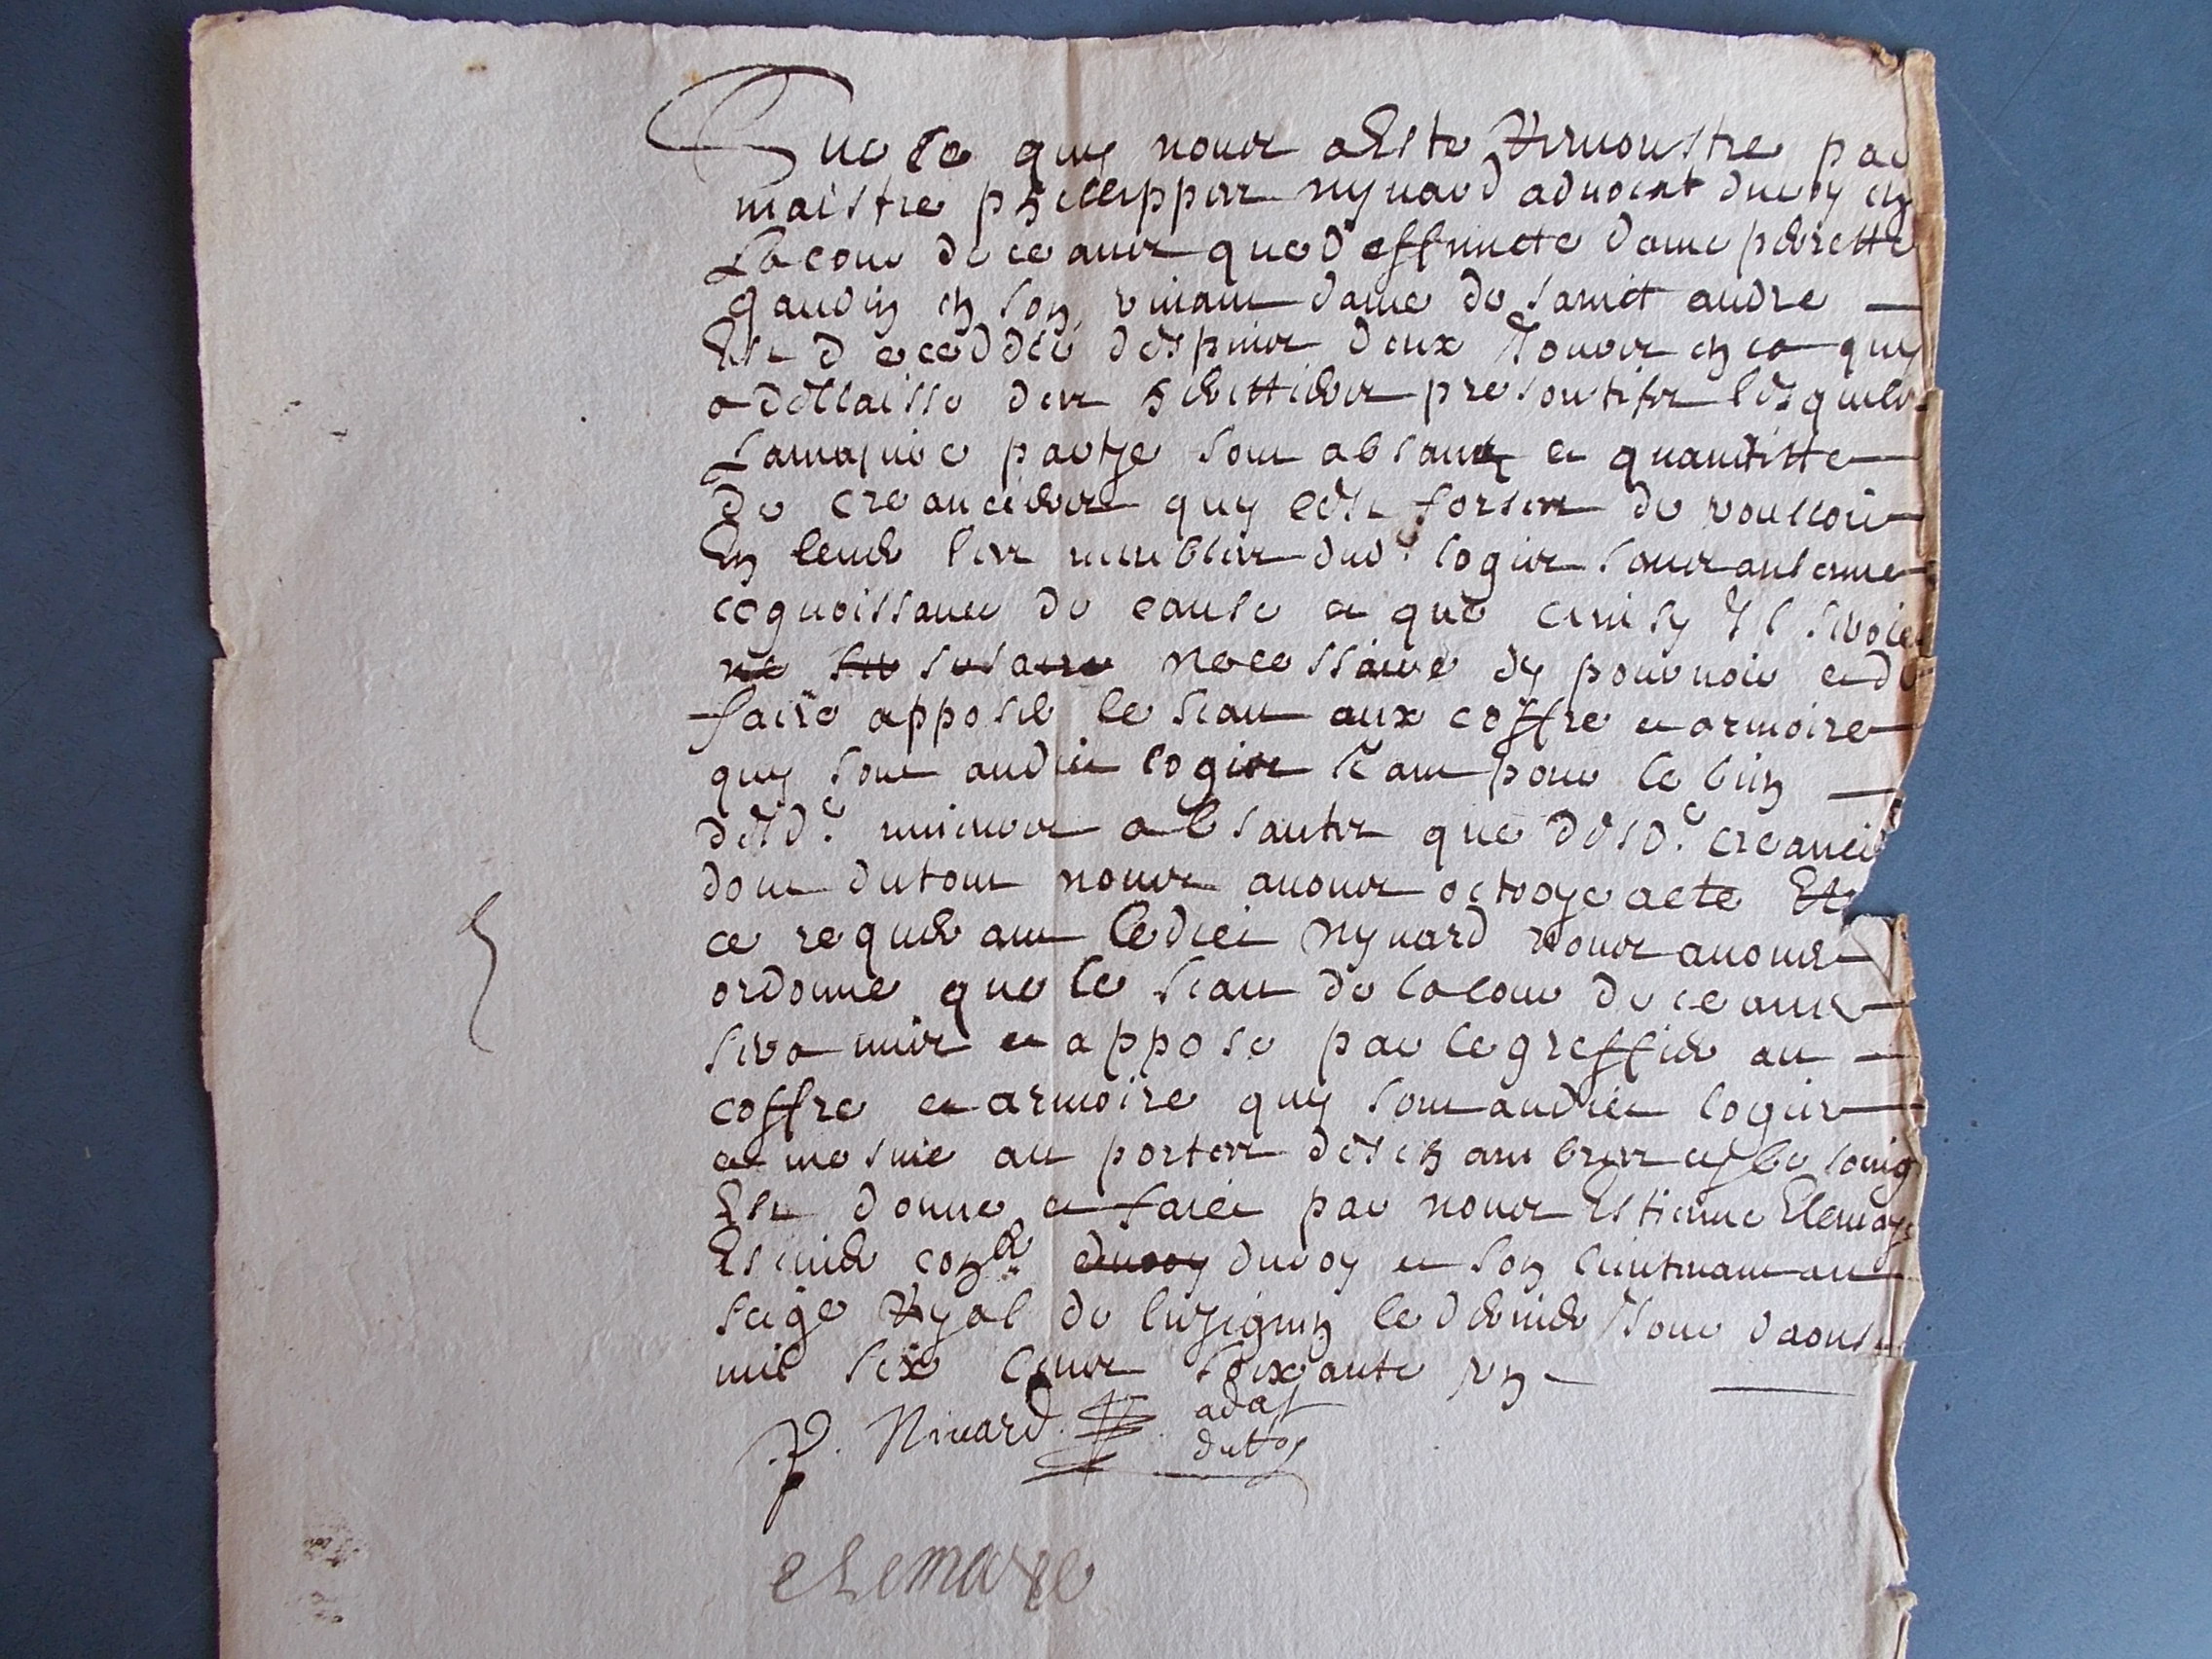 Sur ce quy nous a este remonstre par
maistre phelippes nyvard advocat du roy en
la cour de ceans que deffuncte dame perrette
gaudin en son vivant dame de sainct andre
est deceddee despuis deux jours en ca quy
a dellaisse des herittiers presontifs lesquels
la majure partye sont absans et quantitte
de creanciers quy
enlever les meubles dud. logis sans aulcune
cognoissance de cause et que ainsy il seroit
necessaire dy pourvoir et de
faire apposer le seau aux coffre et armoire
quy sont audict logis tant pour le bien
desd. mineurs absantes que desd. creanci
dont du tout nous avons octroye acte Et
ce requerant ledict nyvard nous avons
ordonne que le seau de la cour de ceans
sera mis et appose par le greffier au
coffre et armoire quy sont audict logis
et mesme au portes des chambres sy besoing
est donne et faict par nous estienne Elemaye
escuier con.er du roy et son lieutenant au
siege royal de luzignen le dernier jour daoust
mil six cens soixante un
P. Nivard adat
du roy
eLemaye